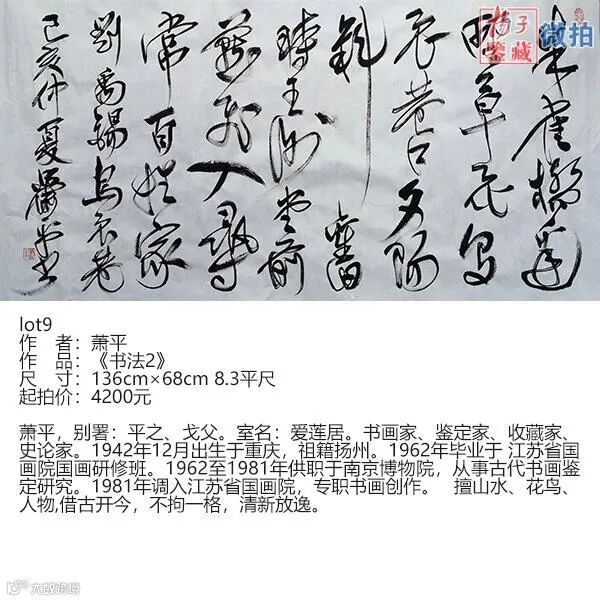 朱雀橋邊
野草花烏
衣巷口夕陽
斜
舊
時王謝堂前
燕飛入尋
常百姓家
劉禹錫烏衣巷
己亥仲夏蕭平書
扬子
鑒藏
微拍
lot9
作 者：萧平
作 品：《书法2》
尺 寸：136cm×68cm 8.3平尺
起拍价：4200元
萧平，别署：平之、戈父。室名：爱莲居。书画家、鉴定家、收藏家、
史论家。1942年12月出生于重庆，祖籍扬州。1962年毕业于 江苏省国
画院国画研修班。1962至1981年供职于南京博物院，从事古代书画鉴
定研究。1981年调入江苏省国画院，专职书画创作。 擅山水、花鸟、
人物,借古开今，不拘一格，清新放逸。
大数跨境